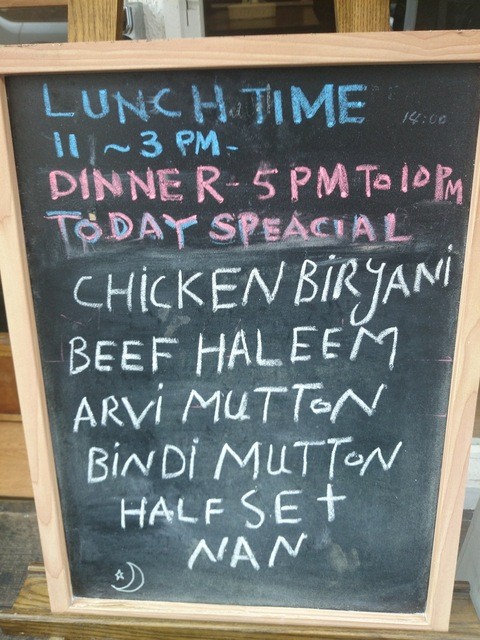 LUNCH TIME
14:00
11 ~ 3 PM -
DINNER - 5 PM To 10 PM
TODAY SPEACIAL
CHiCKEN BiRyANi
BEEF HALEEM
ARVi MUTToN
BiNDi MUTToN
HALF SEt
NAN